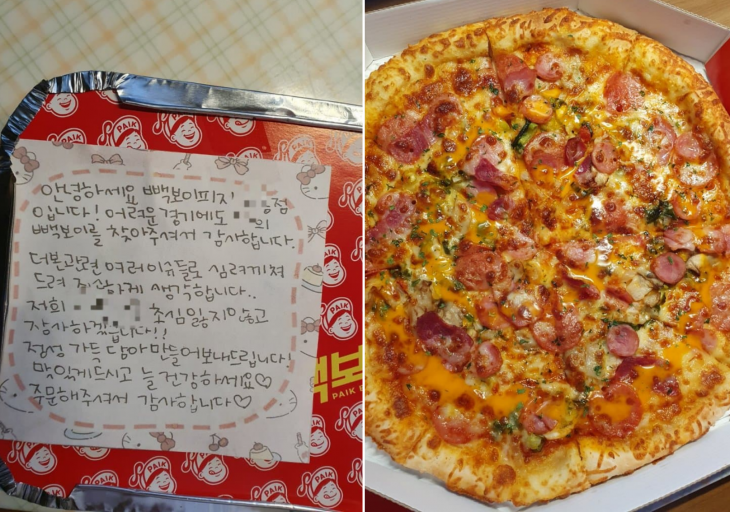 안녕하세요 빽보이피자 점
입니다! 어려운 경기에도 의
빽보이를 찾아주셔서 감사합니다.
더본관련 여러이슈들로 심려끼쳐
드려 죄송하게 생각합니다..
저희 초심 잃지않고
장사하겠습니다!!
정성 가득 담아 만들어보내드립니다!
맛있게드시고 늘 건강하세요♡
주문해주셔서 감사합니다♡
PAIK
PAIK
PAIK
PAIK
PAIK